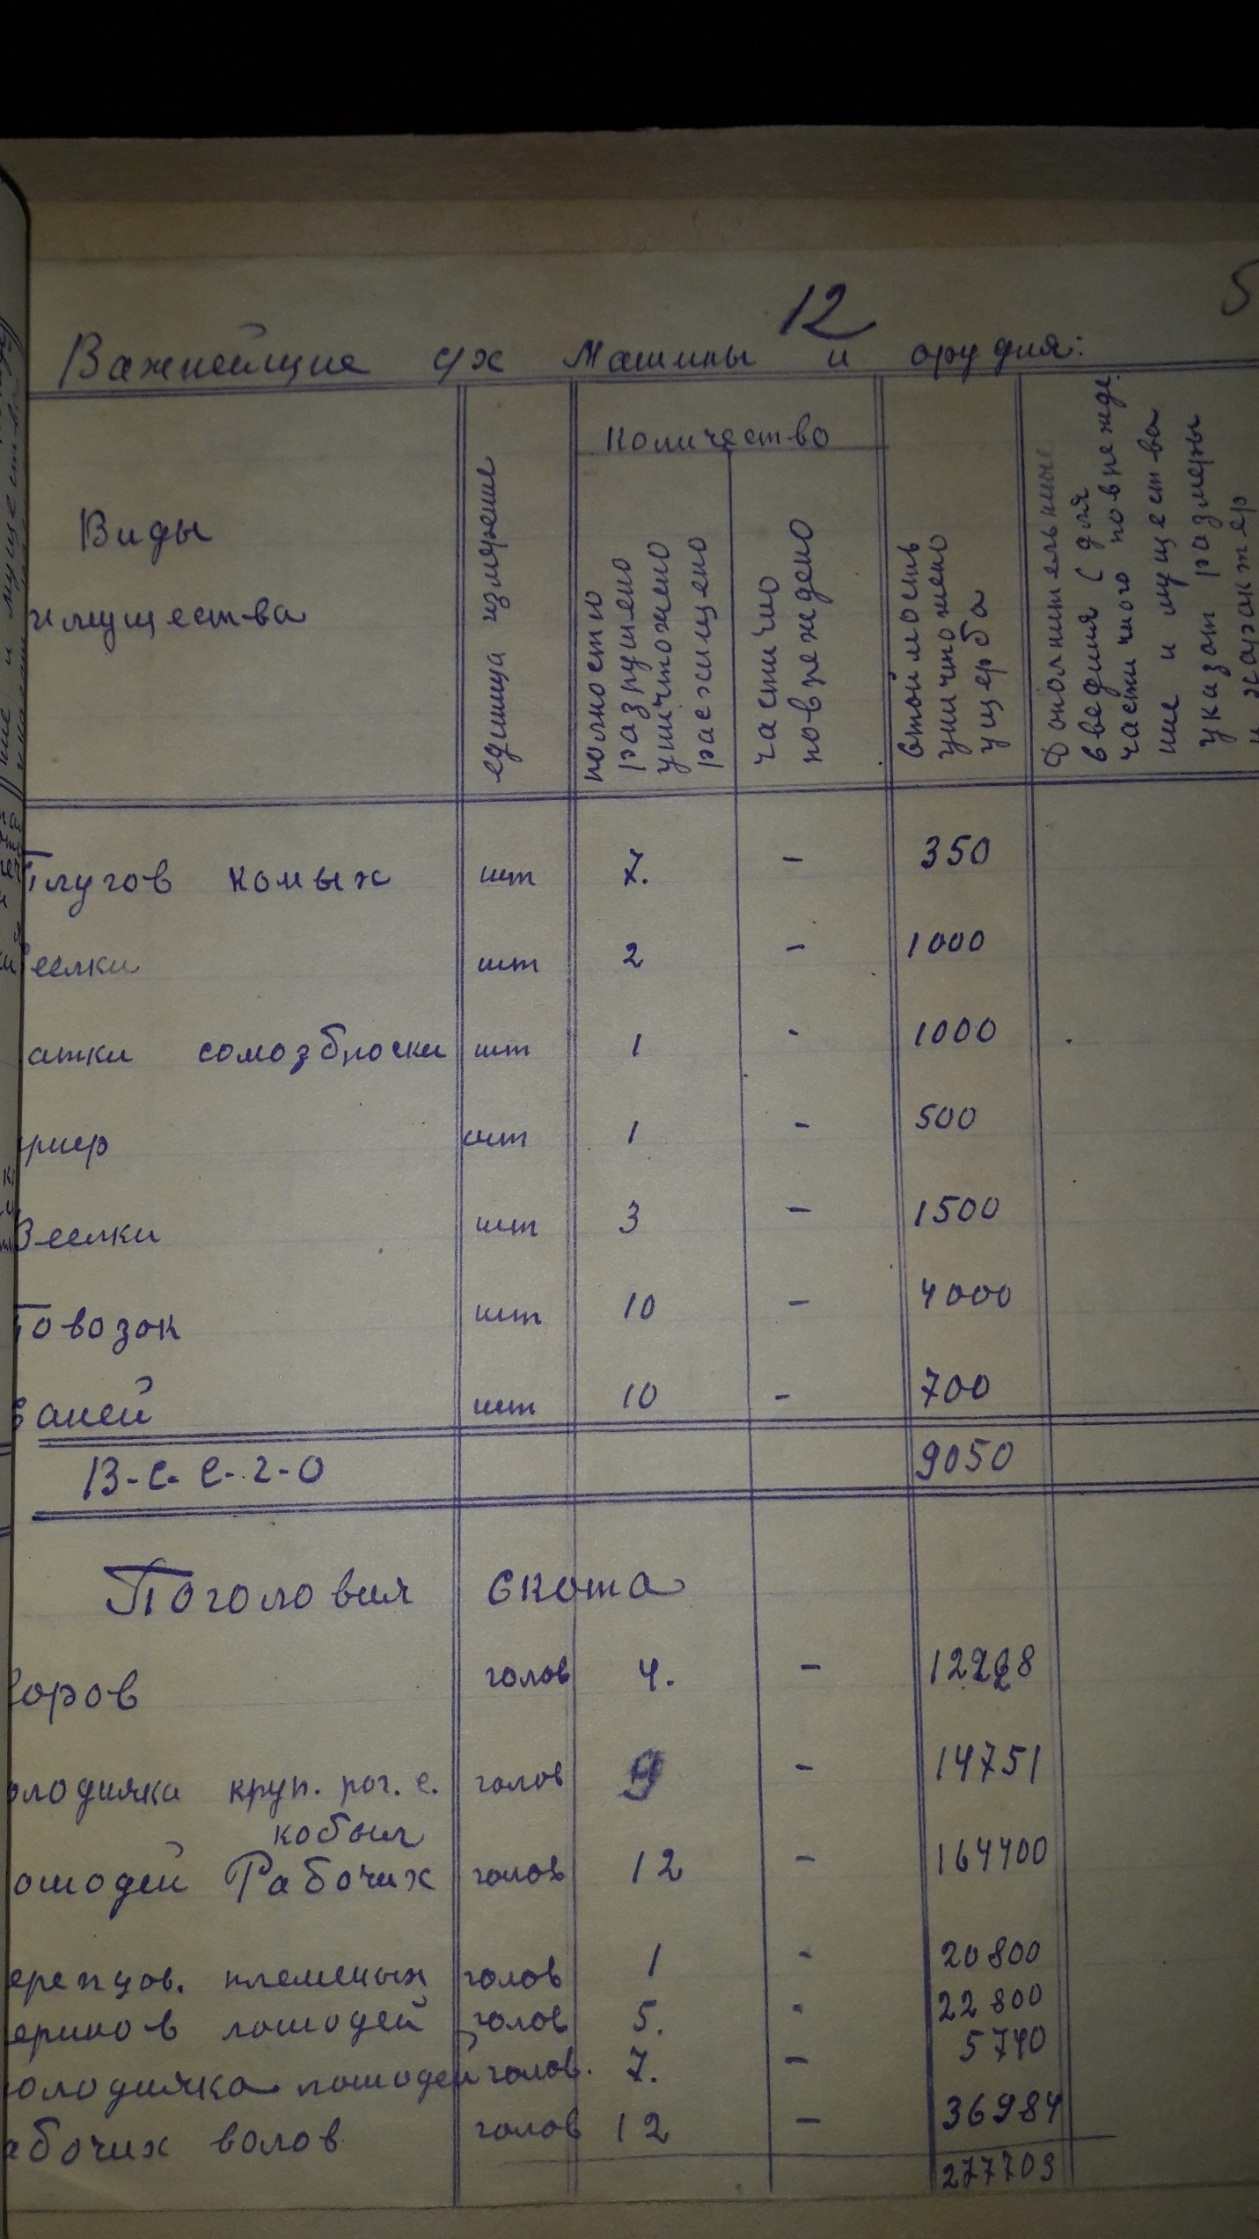 12
5
Важнейщие с/х машины и орудия:
Виды имущества
единица измерение
Количество
полностью разрушено уничтожено расхищено
частично повреждено
Стоймость уничтожено ущерба
Дополнительные сведиия (для частичного поврежде ние имущества указат размеры и характер
Плугов комых шт 7. - 350
еелки шт 2 - 1000
атки самозброски шт 1 - 1000
риер шт 1 - 500
Веелки шт 3 - 1500
Повозок шт 10 - 4000
Саней шт 10 - 700
В-с-е-г-о 9050
Поголовия скота
Коров голов 4. -
олодняка круп. рог. с. голов 9 - 14751
кобыл
ошодей Рабочих голов 12 - 164400
еребцов. племеных голов 1 - 20800
еринов лошодей голов 5. - 22800
олодняка лошодей голов. 7. - 5740
абочих волов голов 12 - 36984
277703